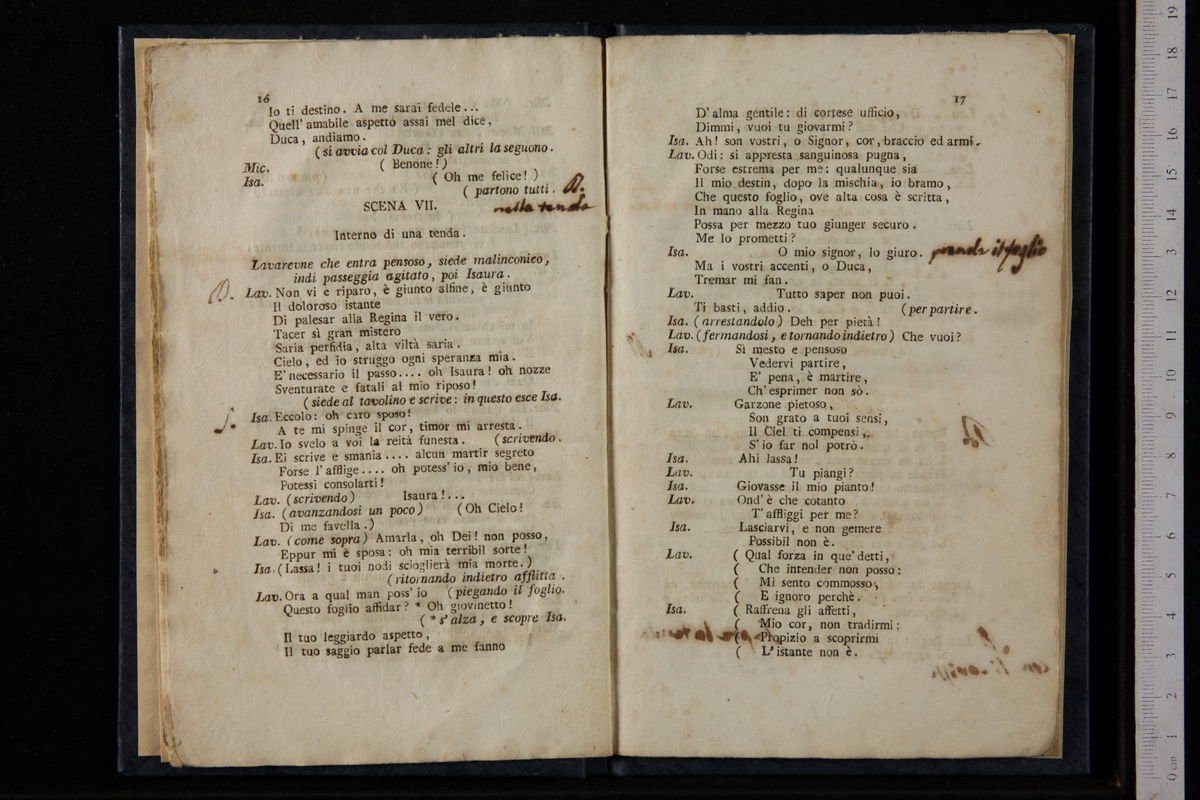 16
Io ti destino. A me sarai fedele...
Quell' amabile aspetto assai mel dice,
Duca, andiamo.
(si avvia col Duca: gli altri la seguono.
Mic. ( Benone!)
Isa. ( Oh me felice! )
( partono tutti.
SCENA VII. nella tenda
Interno di una tenda.
Lavarenne che entra pensoso, siede malinconico,
indi passeggia agitato, poi Isaura.
Lav. Non vi e riparo, è giunto alfine, è giunto
Il doloroso istante
Di palesar alla Regina il vero.
Tacer sì gran mistero
Saria perfidia, alta viltà saria.
Cielo, ed io struggo ogni speranza mia.
E' necessario il passo.... oh Isaura! oh nozze
Sventurate e fatali al mio riposo!
(siede al tavolino e scrive: in questo esce Isa.
Isa. Eccolo: oh caro sposo!
A te mi spinge il cor, timor mi arresta.
Lav. Io svelo a voi la reità funesta. (scrivendo.
Isa. Ei scrive e smania.... alcun martir segreto
Forse l' afflige.... oh potess' io, mio bene,
Potessi consolarti!
Lav. (scrivendo) Isaura!...
Isa. (avanzandosi un poco) (Oh Cielo!
Di me favella.)
Lav. (come sopra) Amarla, oh Dei! non posso,
Eppur mi è sposa: oh mia terribil sorte!
Isa. (Lassa! i tuoi nodi scioglierà mia morte.)
(ritornando indietro afflitta.
Lav. Ora a qual man poss' io (piegando il foglio.
Questo foglio affidar? * Oh giovinetto!
(* s' alza, e scopre Isa.
Il tuo leggiardo aspetto,
Il tuo saggio parlar fede a me fanno
17
D' alma gentile: di cortese ufficio,
Dimmi, vuoi tu giovarmi?
Isa. Ah! son vostri, o Signor, cor, braccio ed armi.
Lav. Odi: si appresta sanguinosa pugna,
Forse estrema per me: qualunque sia
Il mio destin, dopo la mischia, io bramo,
Che questo foglio, ove alta cosa è scritta,
In mano alla Regina
Possa per mezzo tuo giunger securo.
Me lo prometti?
Isa. O mio signor, lo giuro. prende il foglio
Ma i vostri accenti, o Duca,
Tremar mi fan.
Lav. Tutto saper non puoi.
Ti basti, addio. (per partire.
Isa. (arrestandolo) Deh per pietà!
Lav. (fermandosi, e tornando indietro) Che vuoi?
Isa. Sì mesto e pensoso
Vedervi partire,
E' pena, è martire,
Ch' esprimer non sò.
Lav. Garzone pietoso,
Son grato a tuoi sensi,
Il Ciel ti compensi,
S' io far nol potrò.
Isa. Ahi lassa!
Lav. Tu piangi?
Isa. Giovasse il mio pianto!
Lav. Ond' è che cotanto
T' affliggi per me?
Isa. Lasciarvi, e non gemere
Possibil non è.
Lav. ( Qual forza in que' detti,
( Che intender non posso:
( Mi sento commosso,
( E ignoro perchè.
Isa. ( Raffrena gli affetti,
( Mio cor, non tradirmi:
( Propizio a scoprirmi
( L' istante non è.